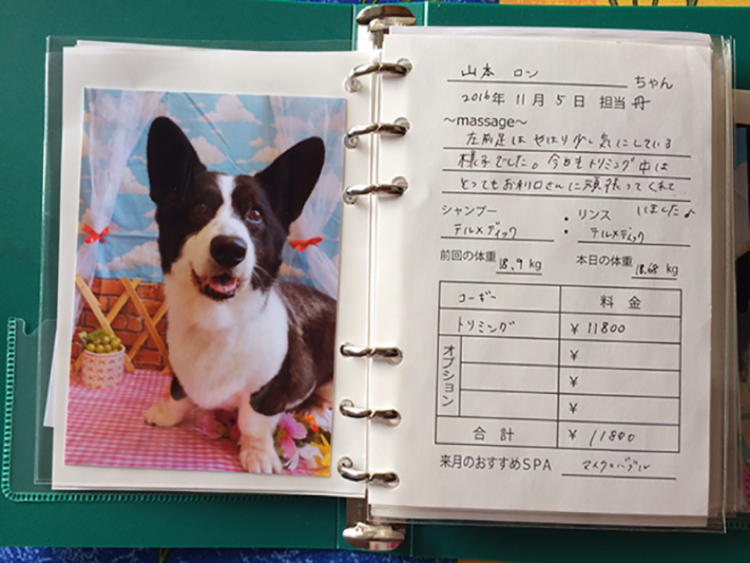 山本 ロン ちゃん
2016年 11月 5日 担当 丹
～massage～
左前足は やはり少し気にしている
様子でした。今日もトリミング中は
とってもお利口さんに頑張ってくれて
いました♪
シャンプー ・ リンス
テルメディック ・ テルメディック
前回の体重 18.9 kg 本日の体重 18.68 kg
コーギー 料金
トリミング ¥ 11800
オプション
¥
¥
¥
合計 ¥ 11800
来月のおすすめSPA マイクロバブル